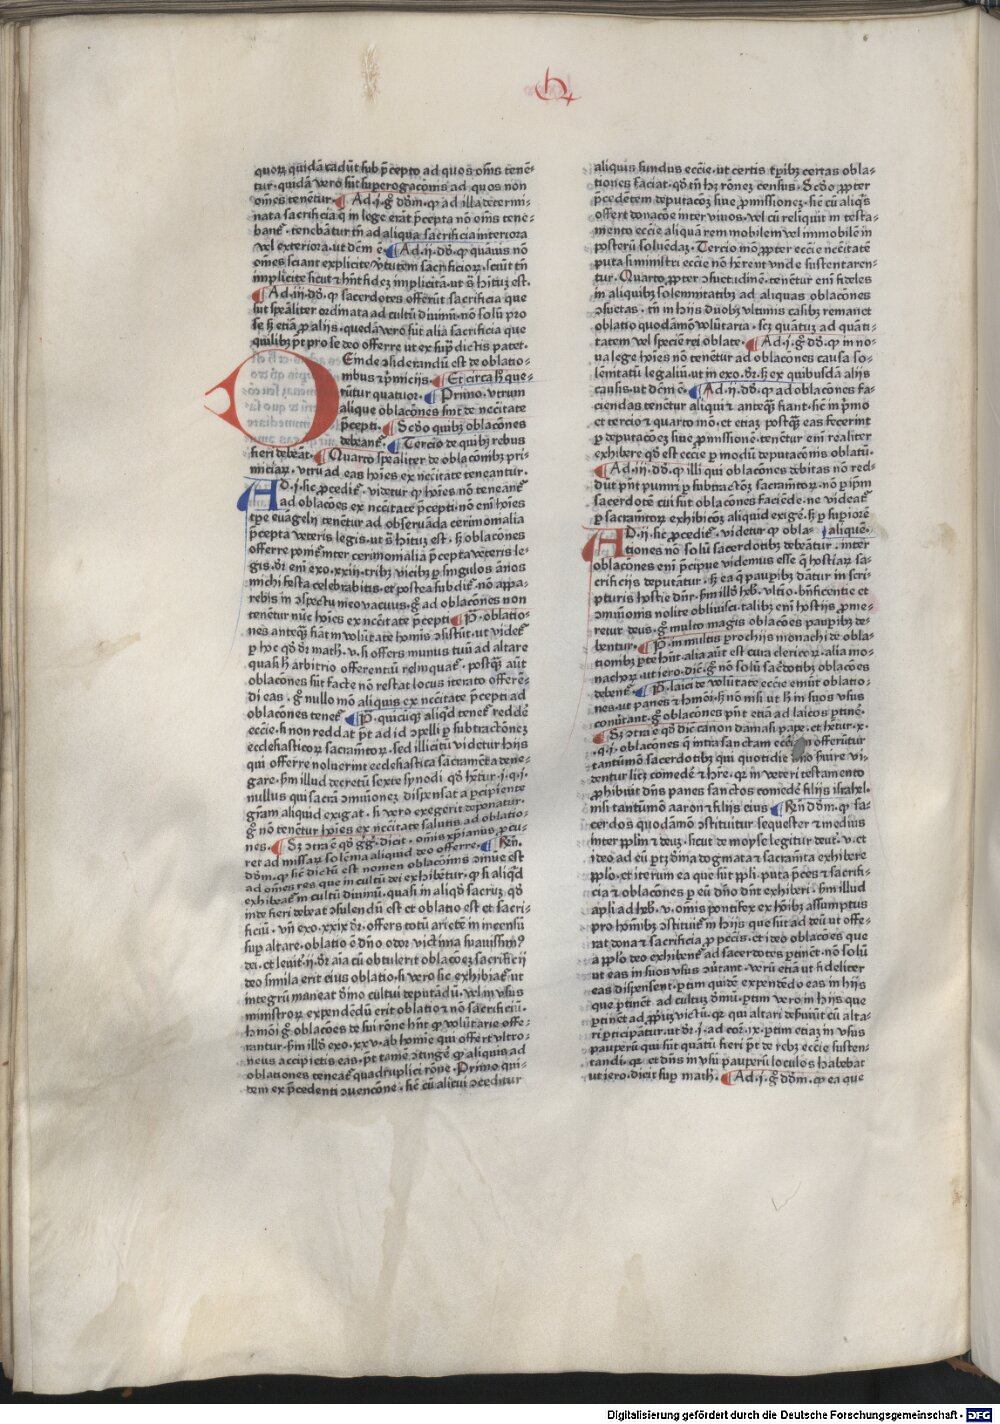 quoꝝ quidā cadūt sub p̄cepto ad quos om̄s tenē-
tur. quidā vero sūt supererogacōnis ad quos non
om̄es tenētur. ¶ Ad .i. gͦ dōm. ꝙ ad illa determi-
nata sacrificia q̄ in lege erāt p̄cepta nō om̄es tene-
bant᷑. tenebātur tn̄ ad aliqua sacrificia interiora
vel exteriora. ut dem ē. ¶ Ad .ii. dō. ꝙ quāuis nō
om̄es sciant explicite v̓tutem sacrificioꝝ. sciūt tn̄
implicite sicut ⁊ hn̄t fidez implicitā. ut s̄ hītuz est.
¶ Ad .iii. dō. ꝙ sacerdotes offerūt sacrificia que
sūt spēaliter ordinata ad cultū diuinū. nō solū pro
se sꝫ etiā ꝓ alijs. quedā vero sūt alia sacrificia que
quilibꝫ pt̄ pro se deo offerre ut ex sup̄dictis patet.
DEinde ꝯsiderandū est de oblatio-
nibus ⁊ p̄micijs. ¶ Et circa hͦ que-
rūtur quatuor. ¶ Primo. vtrum
alique oblacōnes sint de nccītate
p̄cepti. ¶ Scḋo quibꝫ oblacōnes
debeant᷑. ¶ Tercio de quibꝫ rebus
fieri debeāt. ¶ Quarto spēaliter de oblacōnibꝫ pri-
miciaꝝ. vtrū ad eas hoīes ex nccītate teneantur.
AD .i. sic ꝓcedit᷑. videtur ꝙ hoīes nō teneant᷑
ad oblacōes ex nccītate p̄cepti. nō enī hoīes
tp̄e euāgelij tenētur ad obseruāda cerimonialia
p̄cepta veteris legis. ut s̄ hītuz est. sꝫ oblacōnes
offerre ponit᷑ inter cerimonialia p̄cepta veteris le-
gis. dr̄ enī exo. xxiii. tribꝫ vicibꝫ ꝑ singulos ānos
michi festa celebrabitis. et postea subdit᷑. nō appa-
rebis in ꝯspectu meo vacuus. gͦ ad oblacōnes non
tenētur nūc hoīes ex nccītate p̄cepti. ¶ P̄. oblatio-
nes anteqꝫ fiāt in volūtate hoīnis ꝯsistūt. ut videt᷑
ꝑ hͦ qḋ dr̄ math. v. si offers munus tuū ad altare
quasi hͦ arbitrio offerentiū relinquat᷑. postqꝫ aūt
oblacōnes sūt facte nō restat locus iterato offerē-
di eas. gͦ nullo mō aliquis ex nccītate p̄cepti ad
oblacōnes tenet᷑. ¶ P̄. quicūqꝫ aliqḋ tenet᷑ reddē
eccīe. si non reddat pt̄ ad id ꝯpelli ꝑ subtractōnez
ecclesiasticoꝝ sacramtoꝝ. sed illicitū videtur hijs
qui offerre noluerint ecclesiastica sacramēta dene-
gare. sm̄ illud decretū sexte synodi qḋ hētur .i. q. i.
nullus qui sacrā ꝯmūionez dispensat a ꝑcipiente
gr̄am aliquid exigat. si vero exegerit deponatur.
gͦ nō tenētur hoīes ex nccītate salutis ad oblatio-
nes. ¶ Sꝫ ꝯtra ē qḋ g̓g̓. dicit. om̄is xp̄ianus ꝓcu-
ret ad missaꝝ solēnia aliquid deo offerre. ¶ Rn̄.
dōm. ꝙ sic̄ dictū est nomen oblacōnis ꝯmūe est
ad om̄es res que in cultū dei exhibētur. ꝙ si aliqḋ
exhibeat᷑ in cultū diuinū. quasi in aliqḋ sacruꝫ qḋ
inde fieri debeat ꝯsulendū est et oblatio est et sacri-
ficiū. vn̄ exo. xxix dr̄. offers totū arietē in incensū
sup̄ altare. oblatio ē dn̄o odor victime suauissimꝰ
dei. et leuit .ii. dr̄ aīa cū obtulerit oblacōez sacrificij
deo simila erit eius oblatio. si vero sic exhibeat᷑ ut
integrū maneat dīno cultui deputādū. vel in vsus
ministroꝝ expendēdū erit oblatio ⁊ nō sacrificiū.
hmōi gͦ oblacōes de sui rōne hn̄t ꝙ volūtarie offe-
rantur. sm̄ illḋ exo. xxv. ab homīe qui offert vltro-
neus accipietis eas. pt̄ tamē ꝯtingē ꝙ aliquis ad
oblationes teneat᷑ quadruplici rōne. Primo qui-
dem ex p̄cedenti ꝯuencōne. sic̄ cū alicui ꝯceditur
aliquis fundus eccīe. ut certis tp̄ibꝫ certas obla-
tiones faciat. qḋ tn̄ hꝫ rōnez census. Scḋo ꝓpter
p̄cedētem deputacōez siue ꝓmissionez. sic̄ cū aliqͥs
offert donacōe inter viuos. vel cū reliquit in testa-
mento eccīe aliquā rem mobilem vel immobilē in
posterū soluēdaꝫ. Tercio mō ꝓpter eccīe nccītatē
puta si ministri eccīe nō hērent vnde sustentaren-
tur. Quarto ꝓpter ꝯsuetudinē. tenētur enī fideles
in aliquibꝫ solemnitatibꝫ ad aliquas oblacōnes
ꝯsuetas. tn̄ in hijs duobꝫ vltimis casibꝫ remanet
oblatio quodāmō volūtaria. scꝫ quātuꝫ ad quāti-
tatem vel speciē rei oblate. ¶ Ad .i. gͦ dōm. ꝙ in no-
ua lege hoīes nō tenētur ad oblacōnes causa so-
lemnitatū legaliū. ut in exo. dr̄. sꝫ ex quibusdā alijs
causis. ut dem ē. ¶ Ad .ii. dō. ꝙ ad oblacōnes fa-
ciendas tenētur aliqui ⁊ anteqꝫ fiant. sic̄ in p̄mo
et tercio ⁊ quarto mō. et etiaꝫ postqꝫ eas fecerint
ꝑ deputacōez siue ꝓmissionē. tenētur enī realiter
exhibere qḋ est eccīe ꝑ modū deputacōnis oblatū.
¶ Ad .iii. dō. ꝙ illi qui oblacōnes debitas nō red-
dūt pn̄t puniri ꝑ subtractōez sacramtoꝝ. nō ꝑ ipm̄
sacerdotē cui sūt oblacōnes faciēde. ne videat᷑
ꝑ sacramtoꝝ exhibicōez aliquid exigē. sꝫ ꝑ supiorē
AD .ii. sic ꝓcedit᷑. videtur ꝙ obla- aliquē.
tiones nō solū sacerdotibꝫ debeātur. inter
oblacōnes enī p̄cipue videmus esse q̄ hostiaꝝ sa-
crificijs deputātur. sꝫ ea q̄ paupibꝫ dātur in scri-
pturis hostie dn̄r. sm̄ illḋ heb. vltio. bn̄ficentie et
ꝯmūionis nolite obliuisci. talibꝫ enī hostijs ꝓme-
retur deus. gͦ multo magis oblacōes paupibꝫ de-
bentur. ¶ P̄. in multis ꝑrochijs monachi de obla-
tionibꝫ ꝑte hn̄t. alia aūt est cura clericoꝝ. alia mo-
nachoꝝ. ut iero. dic̄. gͦ nō solū sac̄dotibꝫ oblacōes
debent᷑. ¶ P̄. laici de volūtate eccīe emūt oblatio-
nes. ut panes ⁊ hmōi. sꝫ nō nisi ut hͦ in suos vsus
conūtant. gͦ oblacōnes pn̄t etiā ad laicos ꝑtinē.
¶ Sꝫ ꝯtra ē qḋ dic̄ canon damasi pape. et hētur .x.
q. i. oblacōnes q̄ intra sanctam eccīam offerūtur
tantūmō sacerdotibꝫ qui quotidie dn̄o s̓uire vi-
dentur licꝫ comedē ⁊ hēre. qꝛ in veteri testamento
ꝓhibuit dn̄s panes sanctos comedē filijs israhel.
nisi tantūmō aaron ⁊ filijs eius. ¶ Rn̄ dōm. ꝙ sa-
cerdos quodāmō ꝯstituitur sequester ⁊ medius
inter pp̄lm ⁊ deuꝫ. sicut de moyse legitur deut᷑. v. et
ideo ad eū ꝑtꝫ dīna dogmata ⁊ sacramta exhibere
pp̄lo. et iterum ea que sūt pp̄li. puta p̄ces ⁊ sacrifi-
cia ⁊ oblacōnes ꝑ eū dn̄o dn̄t exhiberi. sm̄ illud
apl̄i ad heb. v. om̄is pontifex ex hoībꝫ assumptus
pro hoībꝫ ꝯstituit᷑ in hijs que sūt ad deū ut offe-
rat dona ⁊ sacrificia ꝓ pccīs. et ideo oblacōes que
a pp̄lo deo exhibent᷑ ad sacerdotes ꝑtinēt. nō solū
ut eas in suos vsus ꝯūtant. verū etiā ut fideliter
eas dispensent. ꝑtim quidē expendēdo eas in hijs
que ꝑtinēt ad cultuꝫ dīnū. ꝑtim vero in hijs que
ꝑtinēt ad ꝓpriuꝫ victū. qꝛ qui altari deseruiūt cū alta-
ri ꝑticipātur. ut dr̄ .i. ad cor. ix. ꝑtim etiaꝫ in vsus
pauperū qui sūt quātū fieri pt̄ de rebꝫ eccīe susten-
tandi. qꝛ et dn̄s in vsū pauperū loculos habebat
ut iero. dicit sup̄ math. ¶ Ad .i. gͦ dōm. ꝙ ea que
Digitalisierung gefördert durch die Deutsche Forschungsgemeinschaft - DFG